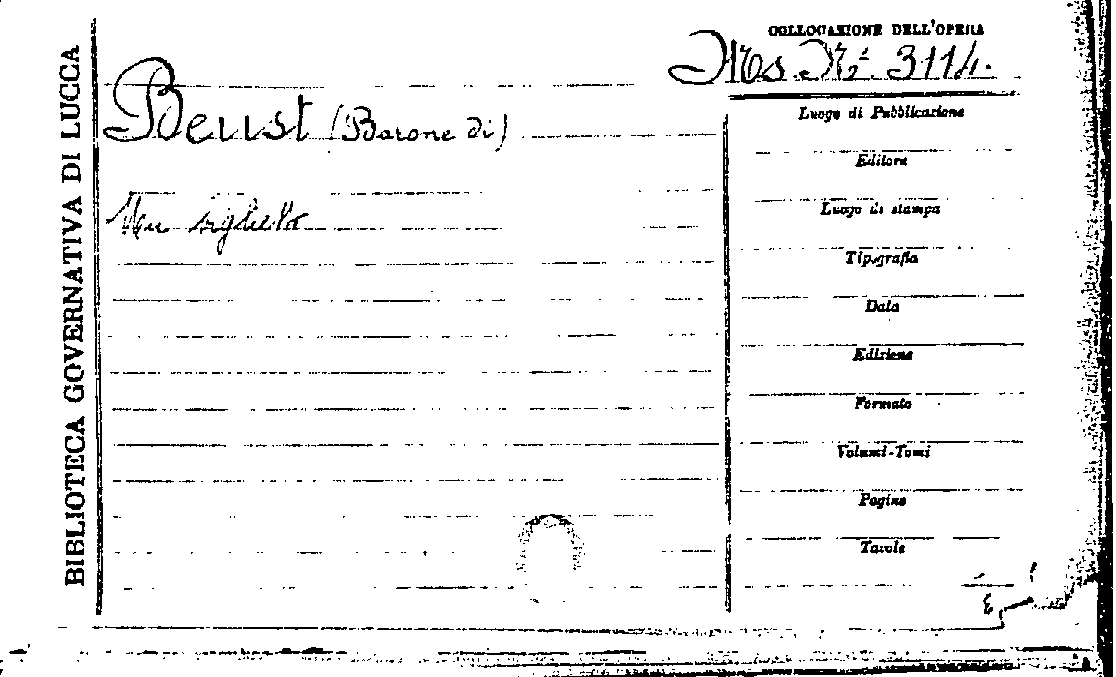 BIBLIOTECA GOVERNATIVA DI LUCCA
COLLOCAZIONE DELL'OPERA
Ms. N.º 3114.
Beust (Barone di)
Un biglietto
Luogo di Pubblicazione
Editore
Luogo di stampa
Tipografia
Data
Edizione
Formato
Volumi-Tomi
Pagine
Tavole